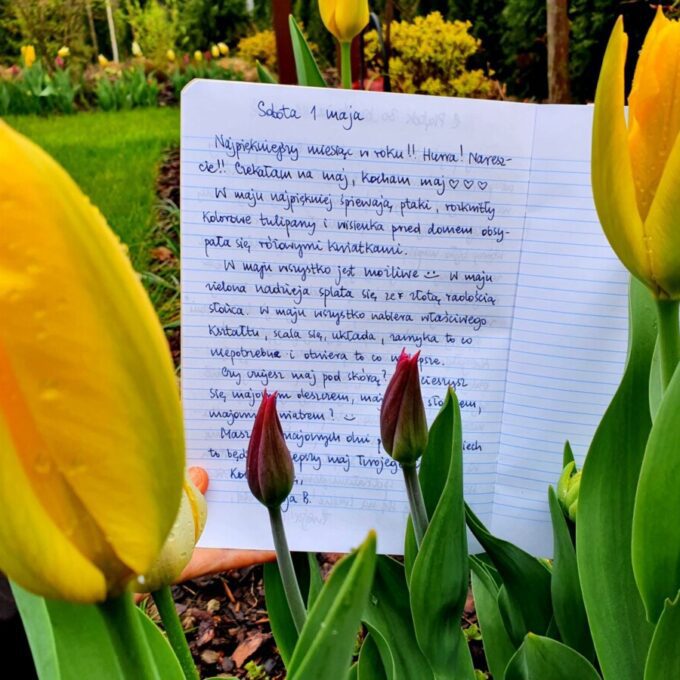 Sobota 1 maja
Najpiękniejszy miesiąc w roku!! Hurra! Naresz-
cie!! Czekałam na maj, kocham maj ♡♡♡
W maju najpiękniej śpiewają ptaki, rozkwitły
kolorowe tulipany i wisienka przed domem obsy-
pała się różowymi kwiatkami.
W maju wszystko jest możliwe :) W maju
zielona nadzieja splata się ze złotą radością
słońca. W maju wszystko nabiera właściwego
kształtu, scala się, układa, zamyka to co
niepotrzebne i otwiera to co
Czy czujesz maj pod skórą? cieszysz
się deszczem,
majowym wiatrem? :)
Masz majowych dni
to maj Twojego
B.